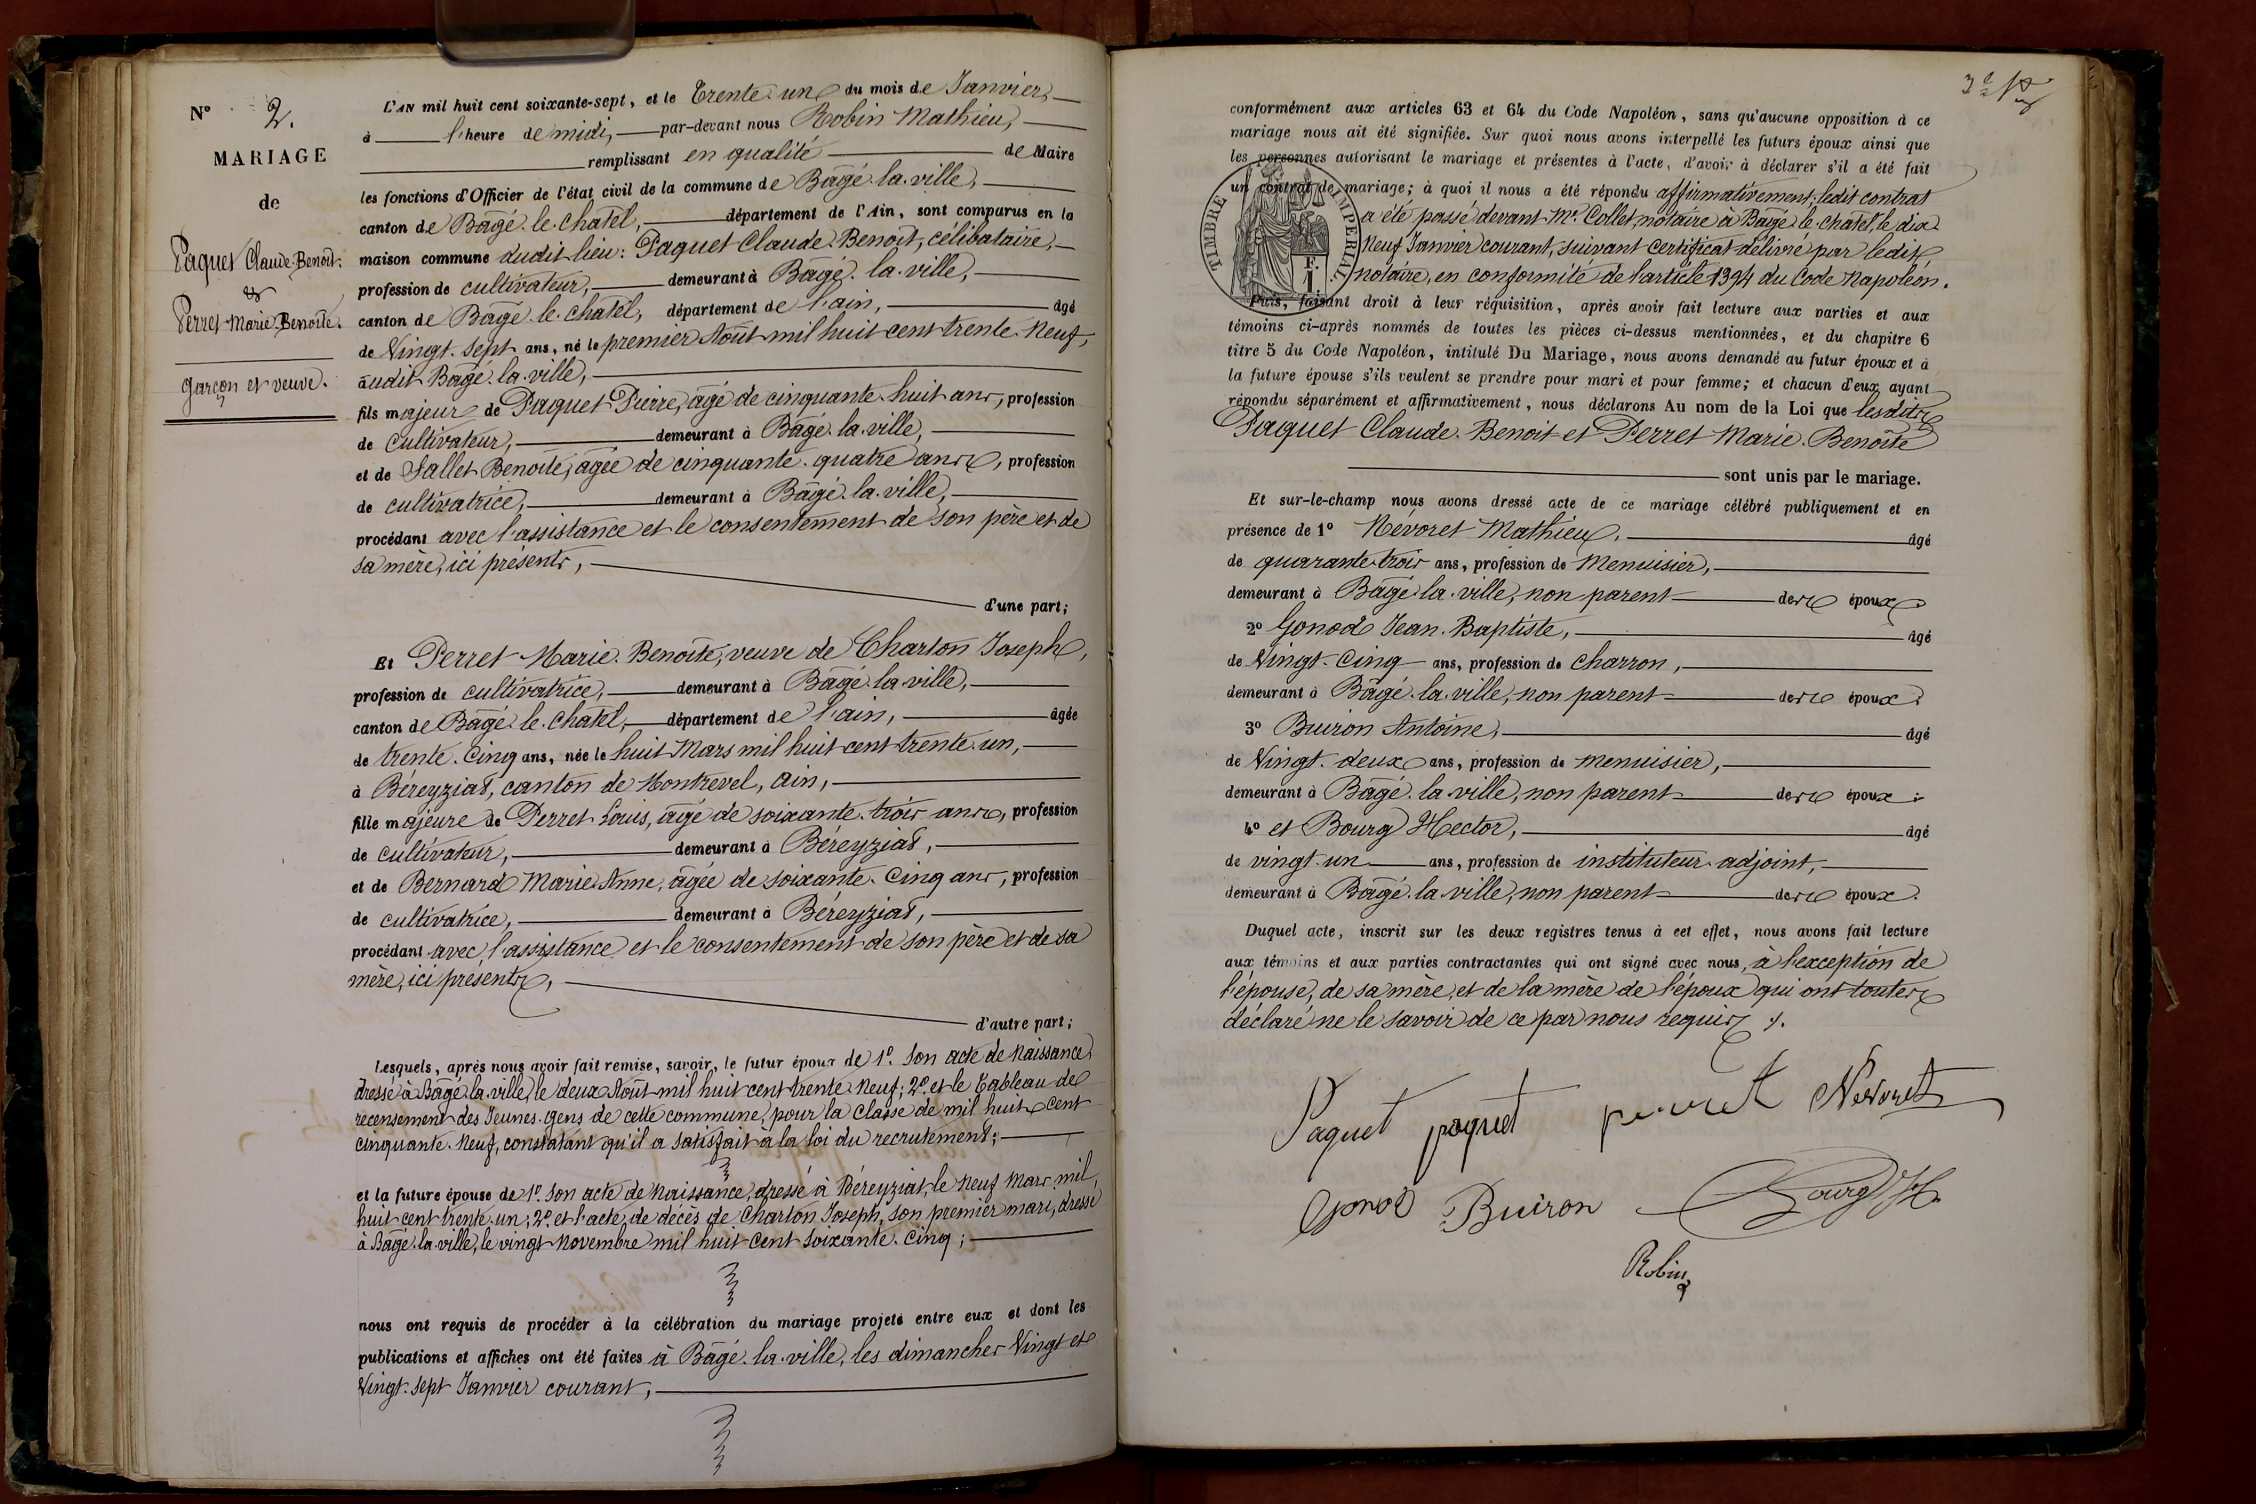 N° 2.
MARIAGE
de
Paquet Claude Benoit.
&
Perret Marie Benoîte.
garçon et veuve.
L'AN mil huit cent soixante-sept, et le Trente un du mois de Janvier,
à l'heure de midi, par-devant nous Robin Mathieu,
remplissant en qualité de Maire
les fonctions d'Officier de l'état civil de la commune de Bâgé-la-ville,
canton de Bâgé-le-châtel, département de l'Ain, sont comparus en la
maison commune dudit lieu: Paquet Claude-Benoit, célibataire,
profession de cultivateur, demeurant à Bâgé-la-ville,
canton de Bâgé-le-châtel, département de l'ain, âgé
de Vingt-sept ans, né le premier Août mil huit cent trente-neuf,
audit Bâgé-la-ville,
fils majeur de Paquet Pierre, âgé de cinquante-huit ans, profession
de cultivateur, demeurant à Bâgé-la-ville,
et de Sallet Benoîte, âgée de cinquante-quatre ans, profession
de cultivatrice, demeurant à Bâgé-la-ville,
procédant avec l'assistance et le consentement de son père et de
sa mère, ici présents,
d'une part;
Et Perret Marie-Benoîte, veuve de Charton Joseph,
profession de cultivatrice, demeurant à Bâgé-la-ville,
canton de Bâgé-le-châtel, département de l'ain, âgée
de trente-cinq ans, née le huit Mars mil huit cent trente-un,
à Béreyziat, canton de Montrevel, ain,
fille majeure de Perret Louis, âgé de soixante-trois ans, profession
de cultivateur, demeurant à Béreyziat,
et de Bernard Marie-Anne, âgée de soixante-cinq ans, profession
de cultivatrice, demeurant à Béreyziat,
procédant avec l'assistance et le consentement de son père et de sa
mère, ici présents,
d'autre part;
Lesquels, après nous avoir fait remise, savoir, le futur époux de 1°. Son acte de Naissance,
dressé à Bâgé-la-ville, le deux Août mil huit cent trente-neuf; 2°. et le Tableau de
recensement des Jeunes-gens de cette commune, pour la Classe de mil huit cent
cinquante-neuf, constatant qu'il a satisfait à la loi du recrutement;
et la future épouse de 1°. Son acte de Naissance, dressé à Béreyziat, le neuf Mars mil
huit cent trente-un; 2°. et l'acte de décès de Charton Joseph, son premier mari, dressé
à Bâgé-la-ville, le vingt Novembre mil huit cent soixante-cinq;
nous ont requis de procéder à la célébration du mariage projeté entre eux et dont les
publications et affiches ont été faites à Bâgé-la-ville, les dimanches Vingt et
Vingt-sept Janvier courant,
conformément aux articles 63 et 64 du Code Napoléon, sans qu'aucune opposition à ce
mariage nous ait été signifiée. Sur quoi nous avons interpellé les futurs époux ainsi que
les personnes autorisant le mariage et présentes à l'acte, d'avoir à déclarer s'il a été fait
un contrat de mariage; à quoi il nous a été répondu affirmativement; ledit contrat
a été passé devant Mr. Collet, notaire à Bâgé-le-châtel, le dix
Neuf Janvier courant, suivant certificat délivré par ledit
notaire, en conformité de l'article 1394 du Code Napoléon.
TIMBRE IMPERIAL
F.
1
Puis, faisant droit à leur réquisition, après avoir fait lecture aux parties et aux
témoins ci-après nommés de toutes les pièces ci-dessus mentionnées, et du chapitre 6
titre 5 du Code Napoléon, intitulé Du Mariage, nous avons demandé au futur époux et à
la future épouse s'ils veulent se prendre pour mari et pour femme; et chacun d'eux ayant
répondu séparément et affirmativement, nous déclarons Au nom de la Loi que lesdits
Paquet Claude-Benoit et Perret Marie-Benoîte
sont unis par le mariage.
Et sur-le-champ nous avons dressé acte de ce mariage célébré publiquement et en
présence de 1° Névoret Mathieu, âgé
de quarante-trois ans, profession de Menuisier,
demeurant à Bâgé-la-ville, non parent des époux
2° Gonod Jean-Baptiste, âgé
de Vingt-cinq ans, profession de Charron,
demeurant à Bâgé-la-ville, non parent des époux
3° Buiron Antoine, âgé
de Vingt-deux ans, profession de Menuisier,
demeurant à Bâgé-la-ville, non parent des époux;
4° et Bourg Hector, âgé
de vingt-un ans, profession de instituteur-adjoint,
demeurant à Bâgé-la-ville, non parent des époux.
Duquel acte, inscrit sur les deux registres tenus à cet effet, nous avons fait lecture
aux témoins et aux parties contractantes qui ont signé avec nous, à l'exception de
l'épouse, de sa mère, et de la mère de l'époux qui ont toutes
déclaré ne le savoir de ce par nous requis.
Paquet paquet perret Nevoret
Gonod Buiron Bourg H.
Robin